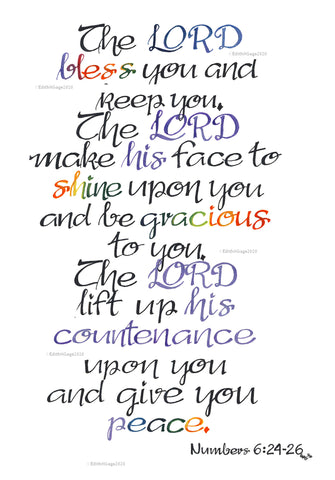 The LORD
©EdithNGiage2020
bless you and
©EdithNGiage2020
keep you.
The LORD
make his face to
shine upon you
and be gracious
to you.
©EdithNGiage2020
The LORD
lift up his
countenance
©EdithNGiage2020
upon you
and give you
peace.
Numbers 6:24-26
©EdithNGiage2020